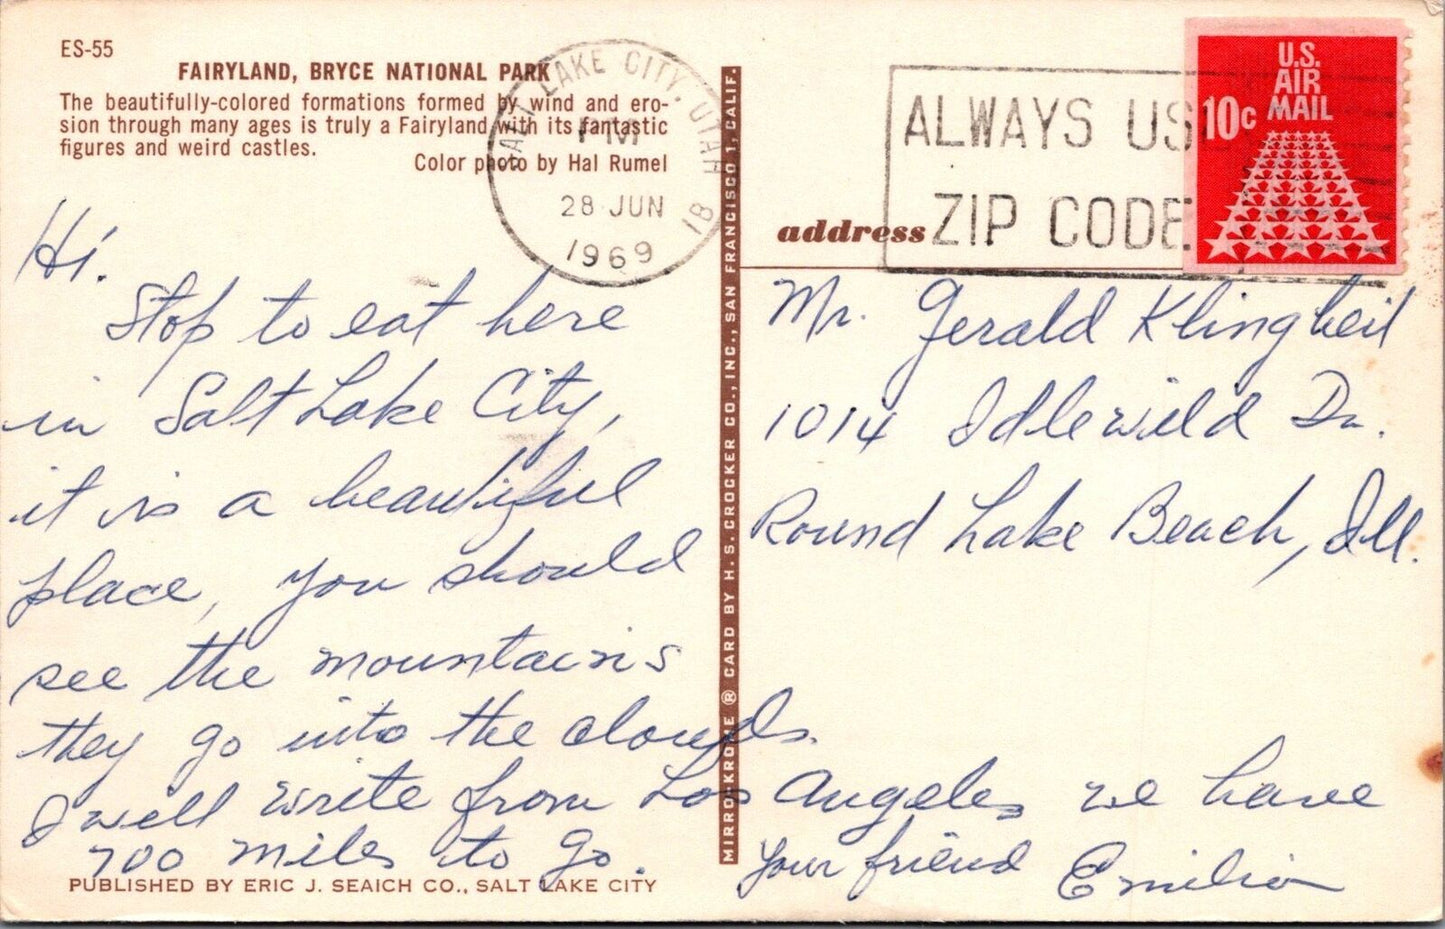 ES-55
FAIRYLAND, BRYCE NATIONAL PARK
The beautifully-colored formations formed by wind and ero-
sion through many ages is truly a Fairyland with its fantastic
figures and weird castles.
Color photo by Hal Rumel
SALT LAKE CITY, UTAH 18
PM
28 JUN
1969
ALWAYS US
ZIP CODE
U.S.
AIR
MAIL
10c
address
Hi.
Stop to eat here
in Salt Lake City,
it is a beautiful
place, you should
see the mountains
they go into the clouds.
I will write from Los Angeles we have
700 miles to go. Your friend Emilio
Mr. Gerald Klingbeil
1014 Idlewild Dr.
Round Lake Beach, Ill.
MIRROKROME ® CARD BY H. S. CROCKER CO., INC., SAN FRANCISCO 1, CALIF.
PUBLISHED BY ERIC J. SEAICH CO., SALT LAKE CITY